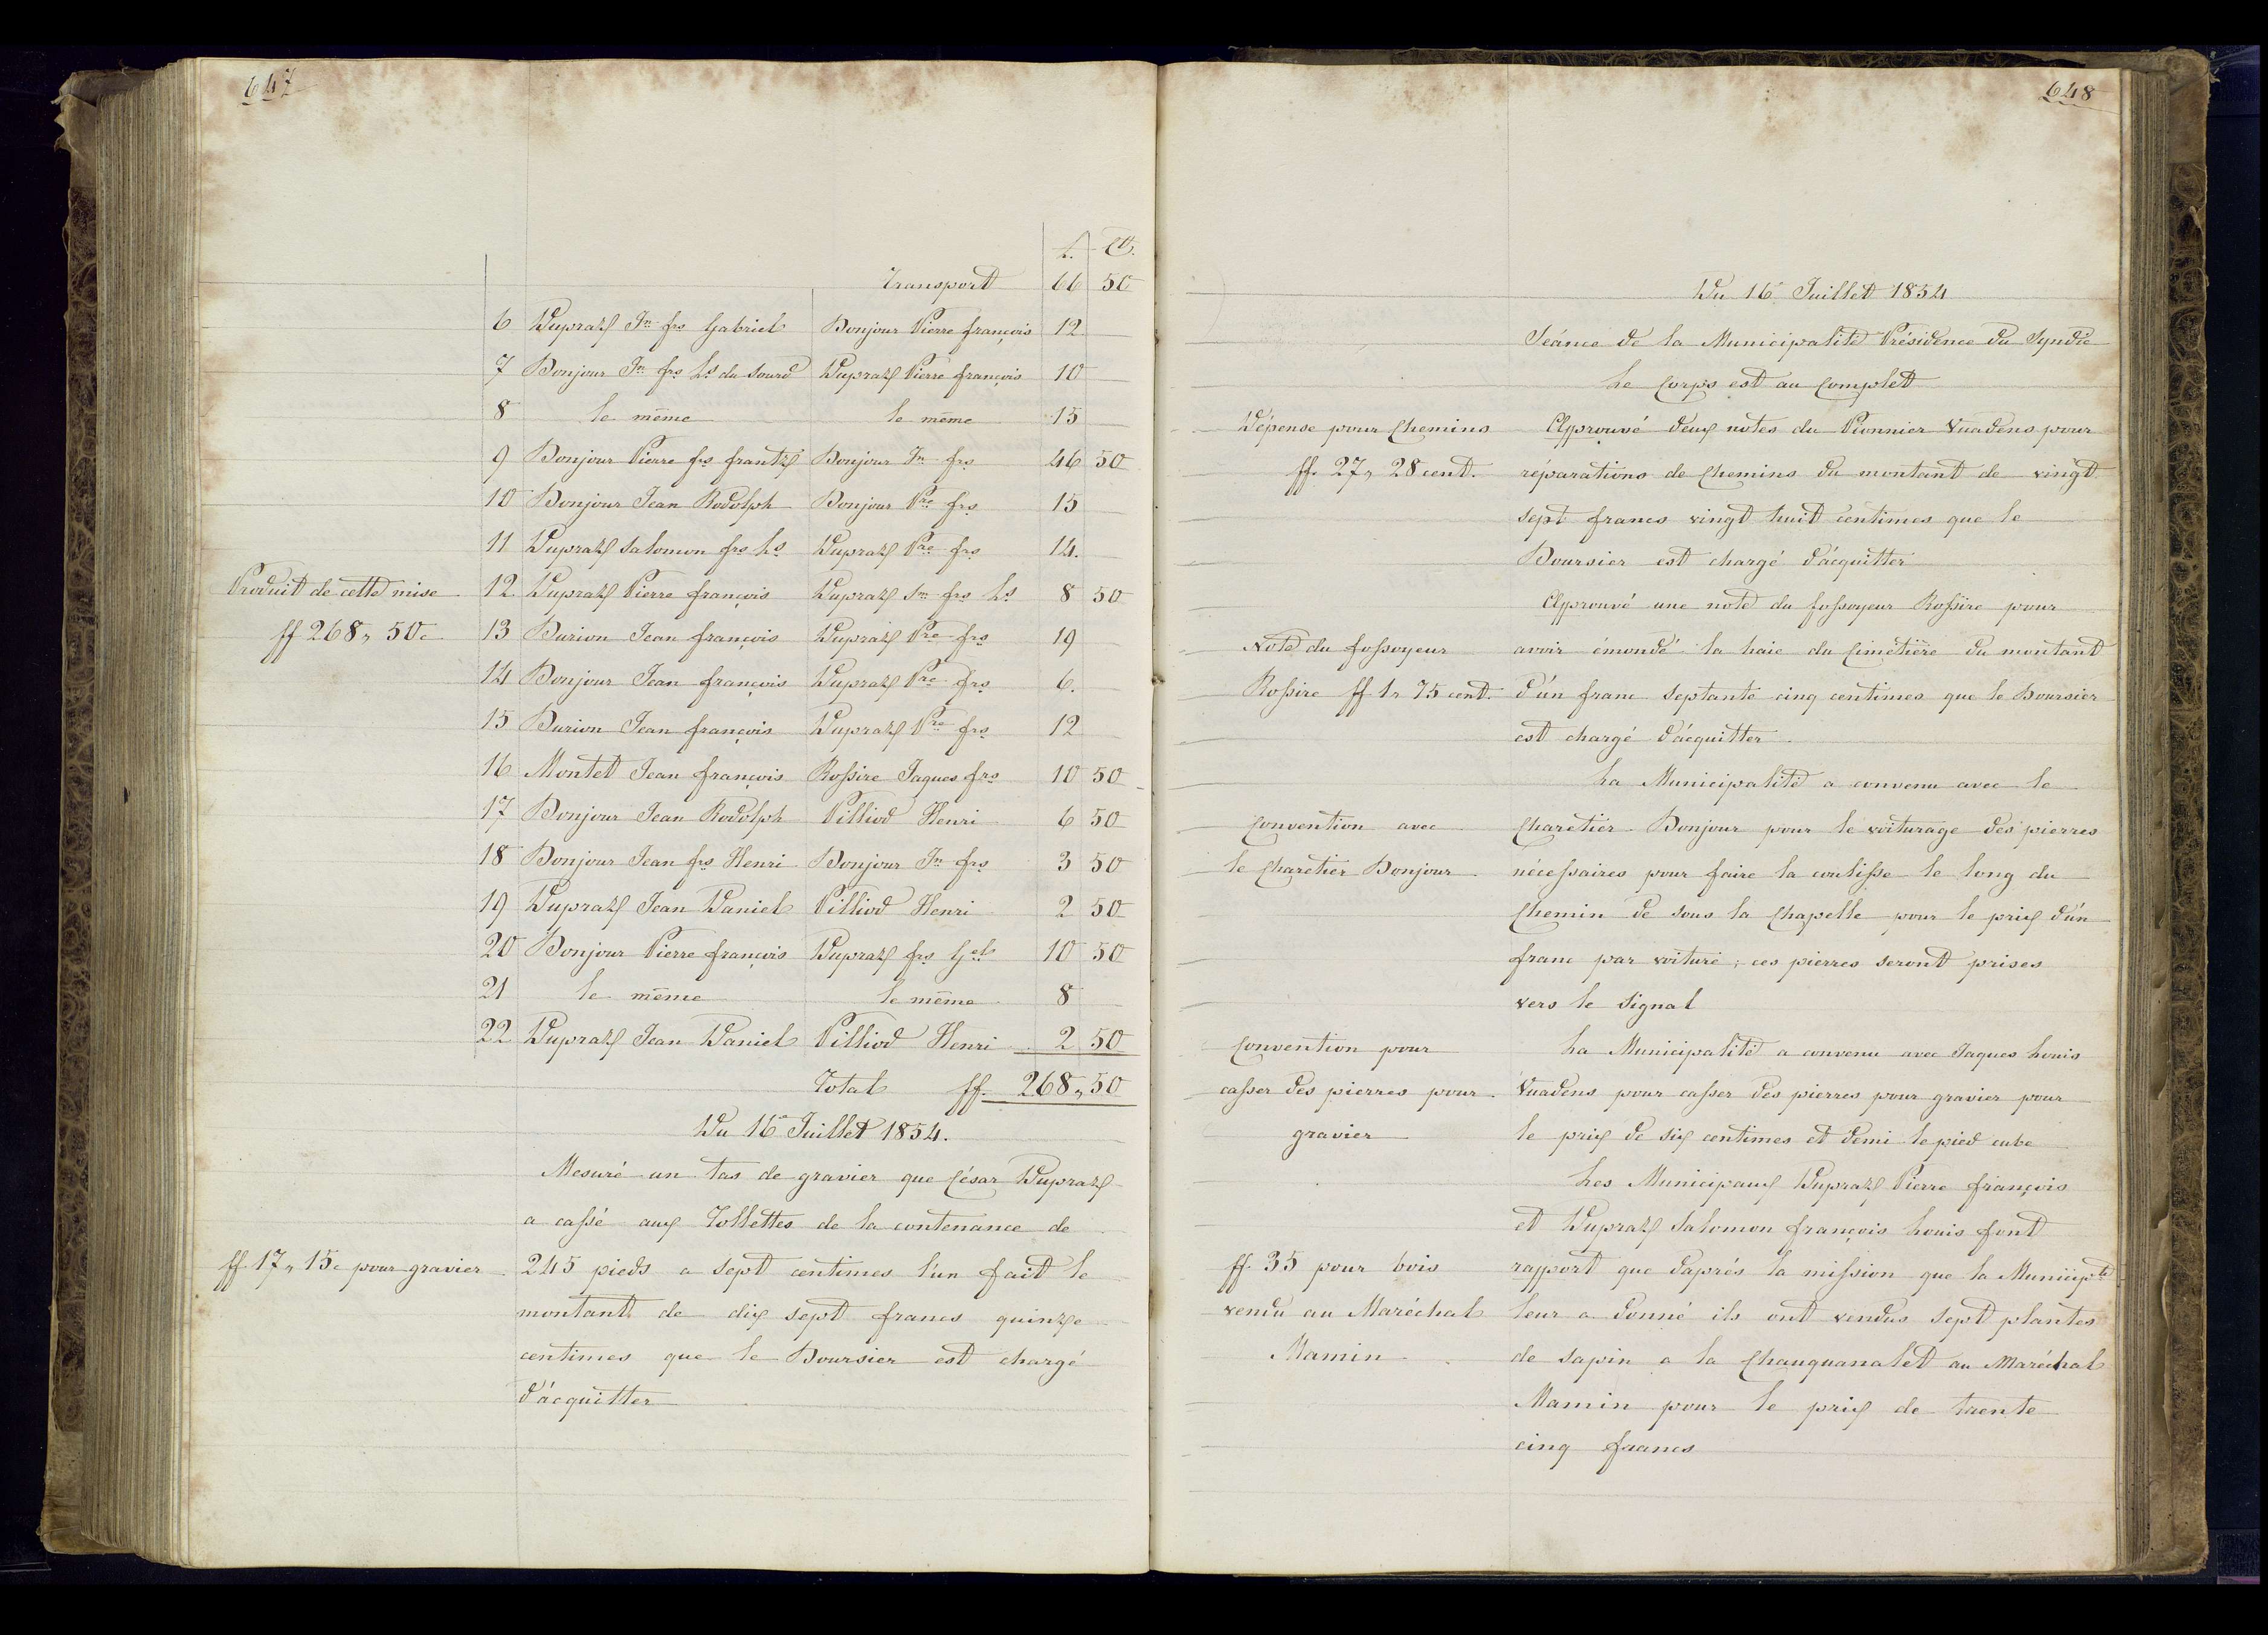 647
f. Ct.
Transport 66 50
6 Dupraz Jn frs Gabriel Bonjour Pierre françois 12
7 Bonjour Jn frs Ls du sourd Dupraz Pierre françois 10
8 le même le même 15
9 Bonjour Pierre frs frantz Bonjour Jn frs 46 50
10 Bonjour Jean Rodolph Bonjour Pre frs 15
11 Dupraz Salomon frs Ls Dupraz Pre frs 14.
Produit de cette mise 12. Dupraz Pierre françois Dupraz Sn frs Ls 8 50
ff 268, 50c 13 Burion Jean françois Dupraz Pre frs 19
14 Bonjour Jean françois Dupraz Pre frs 6.
15 Burion Jean françois Dupraz Pre frs 12
16 Montet Jean françois Rossire Jaques frs 10 50
17 Bonjour Jean Rodolph Pilliod Henri 6 50
18 Bonjour Jean frs Henri Bonjour Jn frs 3 50
19 Dupraz Jean Daniel Pilliod Henri 2 50
20 Bonjour Pierre françois Dupraz frs Gel 10 50
21 le même le même 8
22 Dupraz Jean Daniel Pilliod Henri 2 50
Total ff. 268, 50
Du 16 Juillet 1854.
Mesuré un tas de gravier que César Dupraz
a cassé aux Tollettes de la contenance de
ff. 17, 15c pour gravier 245 pieds a sept centimes l'un fait le
montant de dix sept francs quinze
centimes que le Boursier est chargé
d'acquitter
648
Du 16 Juillet 1854
Séance de la Municipalité Présidence du Syndic
Le Corps est au Complet
Dépense pour Chemins Approuvé deux notes du Pionnier Vuadens pour
ff. 27, 28 cent. réparations de Chemins du montant de vingt
sept francs vingt huit centimes que le
Boursier est chargé d'acquitter
Approuvé une note du fossoyeur Rossire pour
Note du fossoyeur avoir émondé la haie du Cimetière du montant
Rossire ff 1, 75 cent. d'un franc septante cinq centimes que le Boursier
est chargé d'acquitter
La Municipalité a convenu avec le
Convention avec Charetier Bonjour pour le voiturage des pierres
le Charetier Bonjour nécessaires pour faire la coulisse le long du
Chemin de sous la Chapelle pour le prix d'un
franc par voiture ; ces pierres seront prises
vers le Signal
Convention pour La Municipalité a convenu avec Jaques Louis
casser des pierres pour Vuadens pour casser des pierres pour gravier pour
gravier le prix de six centimes et demi le pied cube
Les Municipaux Dupraz Pierre françois
et Dupraz Salomon françois Louis font
ff. 35 pour bois rapport que d'après la mission que la Municipté
vendu au Maréchal leur a donné ils ont vendus sept plantes
Mamin de sapin a la Chauquanalet au Maréchal
Mamin pour le prix de trente
cinq francs